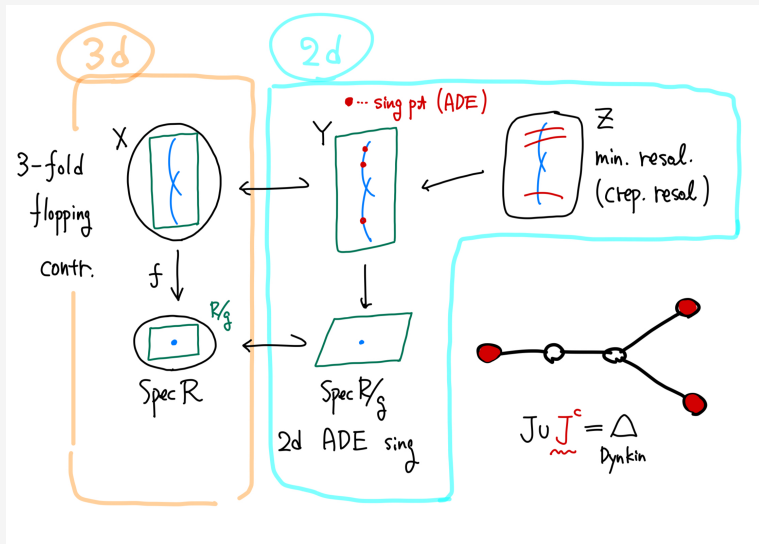 3d
2d
•··· sing pt (ADE)
X
Y
Z
3-fold
flopping
contr.
min. resol.
(crep. resol)
f
R/g
Spec R
Spec R/g
2d ADE sing
J ∪ Jᶜ = Δ
Dynkin